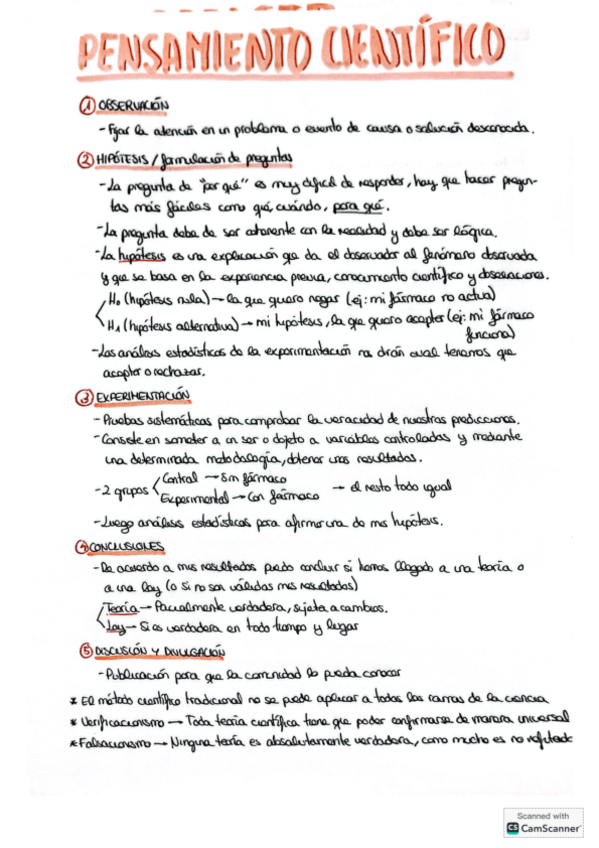 PENSAMIENTO CIENTÍFICO
① OBSERVACIÓN
- Fijar la atención en un problema o evento de causa o solución desconocida.
② HIPÓTESIS / formulación de preguntas
- La pregunta de "por qué" es muy difícil de responder, hay que hacer pregun-
tas más fáciles como qué, cuándo, para qué.
- La pregunta debe de ser coherente con la realidad y debe ser lógica.
- La hipótesis es una explicación que da el observador al fenómeno observado
y que se basa en la experiencia previa, conocimiento científico y observaciones.
H₀ (hipótesis nula) → la que quiero negar (ej: mi fármaco no actua)
H₁ (hipótesis alternativa) → mi hipótesis, la que quiero aceptar (ej: mi fármaco
funciona)
- Los análisis estadísticos de la experimentación nos dirán cual tenemos que
aceptar o rechazar.
③ EXPERIMENTACIÓN
- Pruebas sistemáticas para comprobar la veracidad de nuestras predicciones.
- Consiste en someter a un ser o objeto a variables controladas y mediante
una determinada metodología, obtener unos resultados.
- 2 grupos
Control → Sin fármaco
Experimental → Con fármaco
→ el resto todo igual
- Luego análisis estadísticos para afirmar una de mis hipótesis.
④ CONCLUSIONES
- De acuerdo a mis resultados puedo concluir si hemos llegado a una teoría o
a una ley (o si no son válidos mis resultados)
Teoría → Parcialmente verdadera, sujeta a cambios.
Ley → Si es verdadera en todo tiempo y lugar
⑤ DISCUSIÓN Y DIVULGACIÓN
- Publicación para que la comunidad lo pueda conocer
* El método científico tradicional no se puede aplicar a todas las ramas de la ciencia
* Verificacionismo → Toda teoría científica tiene que poder confirmarse de manera universal
* Falsacionismo → Ninguna teoría es absolutamente verdadera, como mucho es no refutada
Scanned with
CS CamScanner